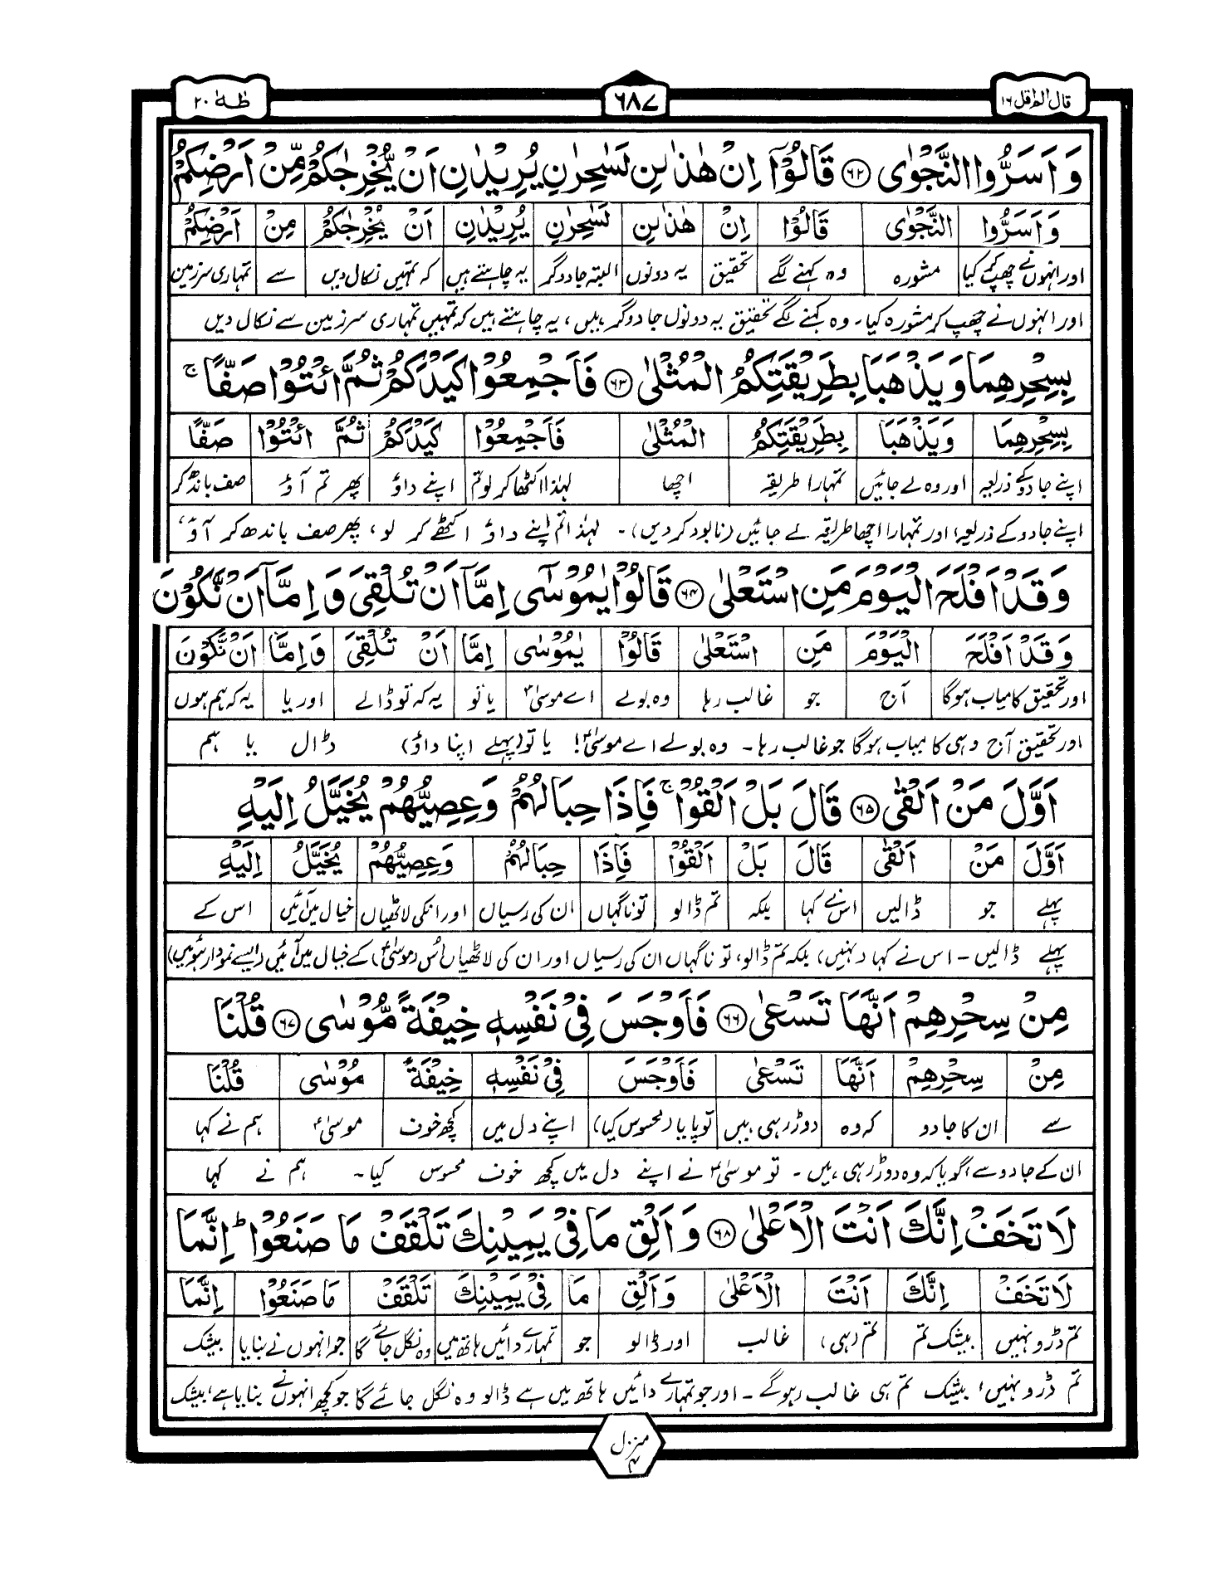 قال الم اقل ۱۶
۶۸۷
طٰهٰ ۲۰
وَاَسَرُّوا النَّجْوٰى ﴿۶۲﴾ قَالُوْٓا اِنْ هٰذٰىنِ لَسٰحِرٰنِ يُرِيْدٰنِ اَنْ يُّخْرِجٰكُمْ مِّنْ اَرْضِكُمْ
وَاَسَرُّوا النَّجْوٰى قَالُوْٓا اِنْ هٰذٰىنِ لَسٰحِرٰنِ يُرِيْدٰنِ اَنْ يُّخْرِجٰكُمْ مِنْ اَرْضِكُمْ
اور انہوں نے چھپ کے کیا مشورہ وہ کہنے لگے تحقیق یہ دونوں البتہ جادوگر یہ چاہتے ہیں کہ تمہیں نکال دیں سے تمہاری سرزمین
اور انہوں نے چھپ کر مشورہ کیا۔ وہ کہنے لگے تحقیق یہ دونوں جادوگر ہیں، یہ چاہتے ہیں کہ تمہیں تمہاری سرزمین سے نکال دیں
بِسِحْرِهِمَا وَيَذْهَبَا بِطَرِيْقَتِكُمُ الْمُثْلٰى ﴿۶۳﴾ فَاَجْمِعُوْا كَيْدَكُمْ ثُمَّ ائْتُوْا صَفًّا ۚ
بِسِحْرِهِمَا وَيَذْهَبَا بِطَرِيْقَتِكُمُ الْمُثْلٰى فَاَجْمِعُوْا كَيْدَكُمْ ثُمَّ ائْتُوْا صَفًّا
اپنے جادو کے ذریعہ اور وہ لے جائیں تمہارا طریقہ اچھا لہذا اکٹھا کر لو تم اپنے داؤ پھر تم آؤ صف باندھ کر
اپنے جادو کے ذریعہ اور تمہارا اچھا طریقہ لے جائیں (نابود کر دیں)۔ لہذا تم اپنے داؤ اکٹھے کر لو، پھر صف باندھ کر آؤ،
وَقَدْ اَفْلَحَ الْيَوْمَ مَنِ اسْتَعْلٰى ﴿۶۴﴾ قَالُوْا يٰمُوْسٰٓى اِمَّآ اَنْ تُلْقِىَ وَاِمَّآ اَنْ نَّكُوْنَ
وَقَدْ اَفْلَحَ الْيَوْمَ مَنِ اسْتَعْلٰى قَالُوْا يٰمُوْسٰى اِمَّا اَنْ تُلْقِىَ وَاِمَّا اَنْ نَّكُوْنَ
اور تحقیق کامیاب ہوگا آج جو غالب رہا وہ بولے اے موسیٰؑ یا تو یہ کہ تو ڈالے اور یا یہ کہ ہم ہوں
اور تحقیق آج وہی کامیاب ہوگا جو غالب رہا۔ وہ بولے اے موسیٰؑ! یا تو (پہلے اپنا داؤ) ڈال یا ہم
اَوَّلَ مَنْ اَلْقٰى ﴿۶۵﴾ قَالَ بَلْ اَلْقُوْا ۚ فَاِذَا حِبَالُهُمْ وَعِصِيُّهُمْ يُخَيَّلُ اِلَيْهِ
اَوَّلَ مَنْ اَلْقٰى قَالَ بَلْ اَلْقُوْا فَاِذَا حِبَالُهُمْ وَعِصِيُّهُمْ يُخَيَّلُ اِلَيْهِ
پہلے جو ڈالیں اس نے کہا بلکہ تم ڈالو تو ناگہاں ان کی رسیاں اور انکی لاٹھیاں خیال میں آئیں اس کے
پہلے ڈالیں۔ اس نے کہا (نہیں) بلکہ تم ڈالو، تو ناگہاں ان کی رسیاں اور ان کی لاٹھیاں اُس (موسیٰؑ) کے خیال میں آئیں (ایسے نمودار ہوئیں)
مِنْ سِحْرِهِمْ اَنَّهَا تَسْعٰى ﴿۶۶﴾ فَاَوْجَسَ فِىْ نَفْسِهٖ خِيْفَةً مُّوْسٰى ﴿۶۷﴾ قُلْنَا
مِنْ سِحْرِهِمْ اَنَّهَا تَسْعٰى فَاَوْجَسَ فِىْ نَفْسِهٖ خِيْفَةً مُوْسٰى قُلْنَا
سے ان کا جادو کہ وہ دوڑ رہی ہیں تو پایا (محسوس کیا) اپنے دل میں کچھ خوف موسیٰؑ ہم نے کہا
ان کے جادو سے گویا کہ وہ دوڑ رہی ہیں۔ تو موسیٰؑ نے اپنے دل میں کچھ خوف محسوس کیا۔ ہم نے کہا
لَا تَخَفْ اِنَّكَ اَنْتَ الْاَعْلٰى ﴿۶۸﴾ وَاَلْقِ مَا فِىْ يَمِيْنِكَ تَلْقَفْ مَا صَنَعُوْا ؕ اِنَّمَا
لَا تَخَفْ اِنَّكَ اَنْتَ الْاَعْلٰى وَاَلْقِ مَا فِىْ يَمِيْنِكَ تَلْقَفْ مَا صَنَعُوْا اِنَّمَا
تم ڈرو نہیں بیشک تم تم (ہی) غالب اور ڈالو جو تمہارے دائیں ہاتھ میں وہ نگل جائے گا جو انہوں نے بنایا بیشک
تم ڈرو نہیں، بیشک تم ہی غالب رہوگے۔ اور جو تمہارے دائیں ہاتھ میں ہے ڈالو وہ نگل جائے گا جو کچھ انہوں نے بنایا ہے، بیشک
منزل ۴